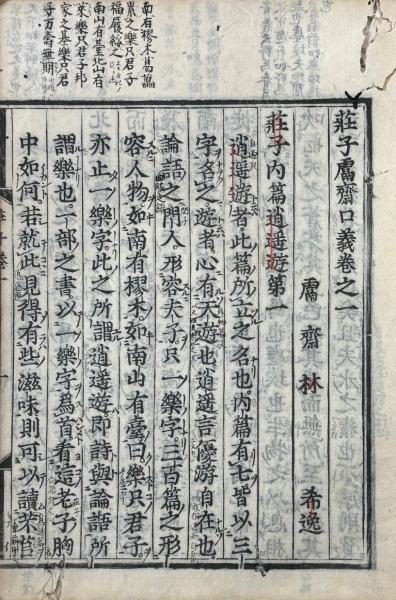 莊子鬳齋口義卷之一
鬳齋林 希逸
莊子內篇逍遥遊第一
逍遥遊者此篇所立之名也內篇有七皆以三
字名之遊者心有天遊也逍遥言優游自在也
論語之門人形容夫子只一樂字三百篇之形
容人物如南有樛木如南山有臺曰樂只君子
亦止一樂字此之所謂逍遥遊即詩與論語所
謂樂也一部之書以一樂字爲首看這老子胸
中如何若就此見得有些滋味則可以讀芣苢
南有樛木葛藟
累之樂只君子
福履綏之
南山有臺北山有
萊樂只君子邦
家之基樂只君
子万壽無期